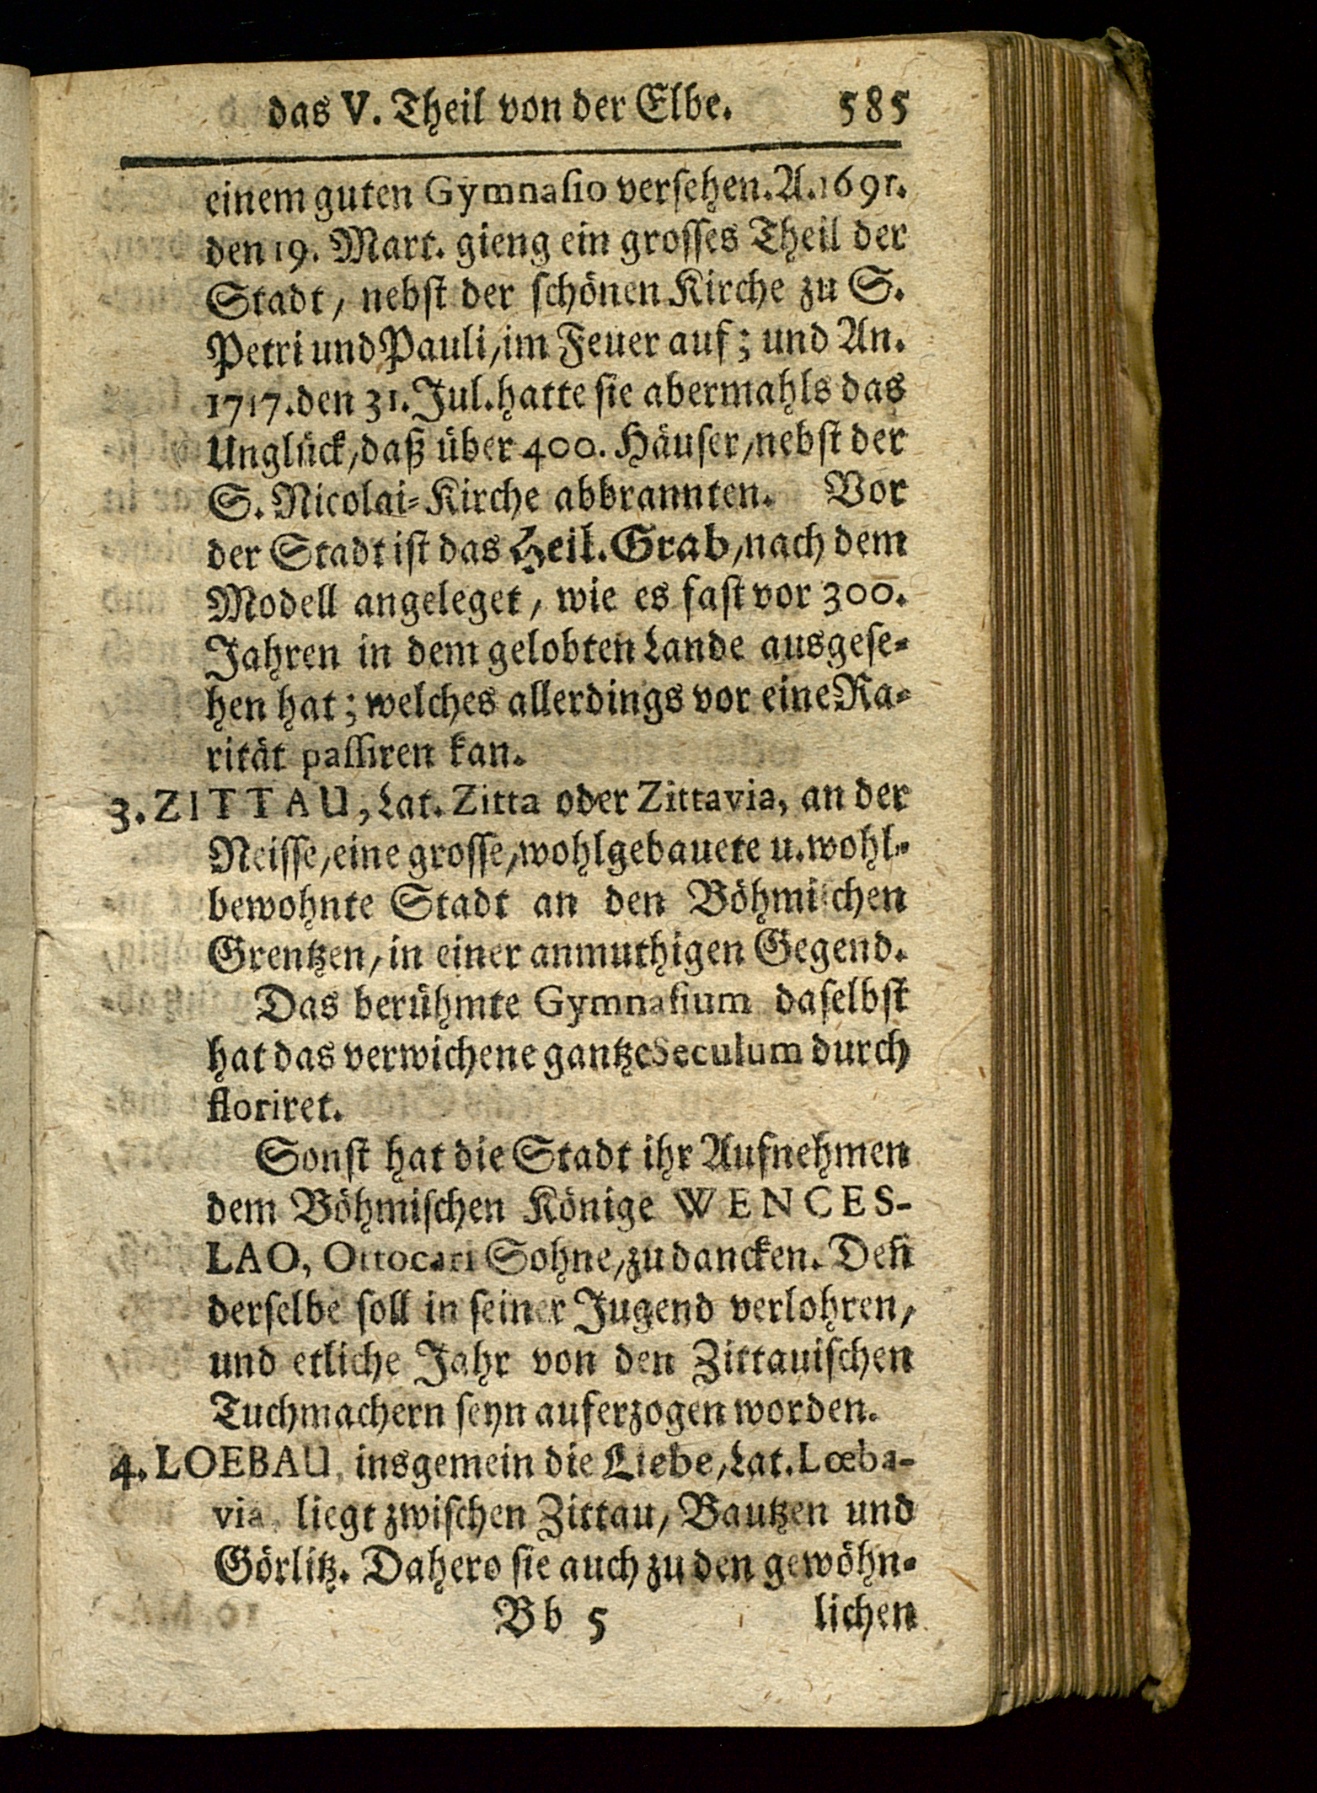 das V. Theil von der Elbe. 585
einem guten Gymnasio versehen. A. 1691.
den 19. Mart. gieng ein grosses Theil der
Stadt, nebst der schönen Kirche zu S.
Petri und Pauli, im Feuer auf; und An.
1717. den 31. Jul. hatte sie abermahls das
Unglück, daß über 400. Häuser, nebst der
S. Nicolai-Kirche abbrannten. Vor
der Stadt ist das Heil. Grab, nach dem
Modell angeleget, wie es fast vor 300.
Jahren in dem gelobten Lande ausgese-
hen hat; welches allerdings vor eine Ra-
rität passiren kan.
3. ZITTAU, Lat. Zitta oder Zittavia, an der
Neisse, eine grosse, wohlgebauete u. wohl-
bewohnte Stadt an den Böhmischen
Grentzen, in einer anmuthigen Gegend.
Das berühmte Gymnasium daselbst
hat das verwichene gantze Seculum durch
floriret.
Sonst hat die Stadt ihr Aufnehmen
dem Böhmischen Könige WENCES-
LAO, Ottocari Sohne, zu dancken. Deñ
derselbe soll in seiner Jugend verlohren,
und etliche Jahr von den Zittauischen
Tuchmachern seyn auferzogen worden.
4. LOEBAU, insgemein die Liebe, Lat. Lœba-
via, liegt zwischen Zittau, Bautzen und
Görlitz. Dahero sie auch zu den gewöhn-
Bb 5 lichen